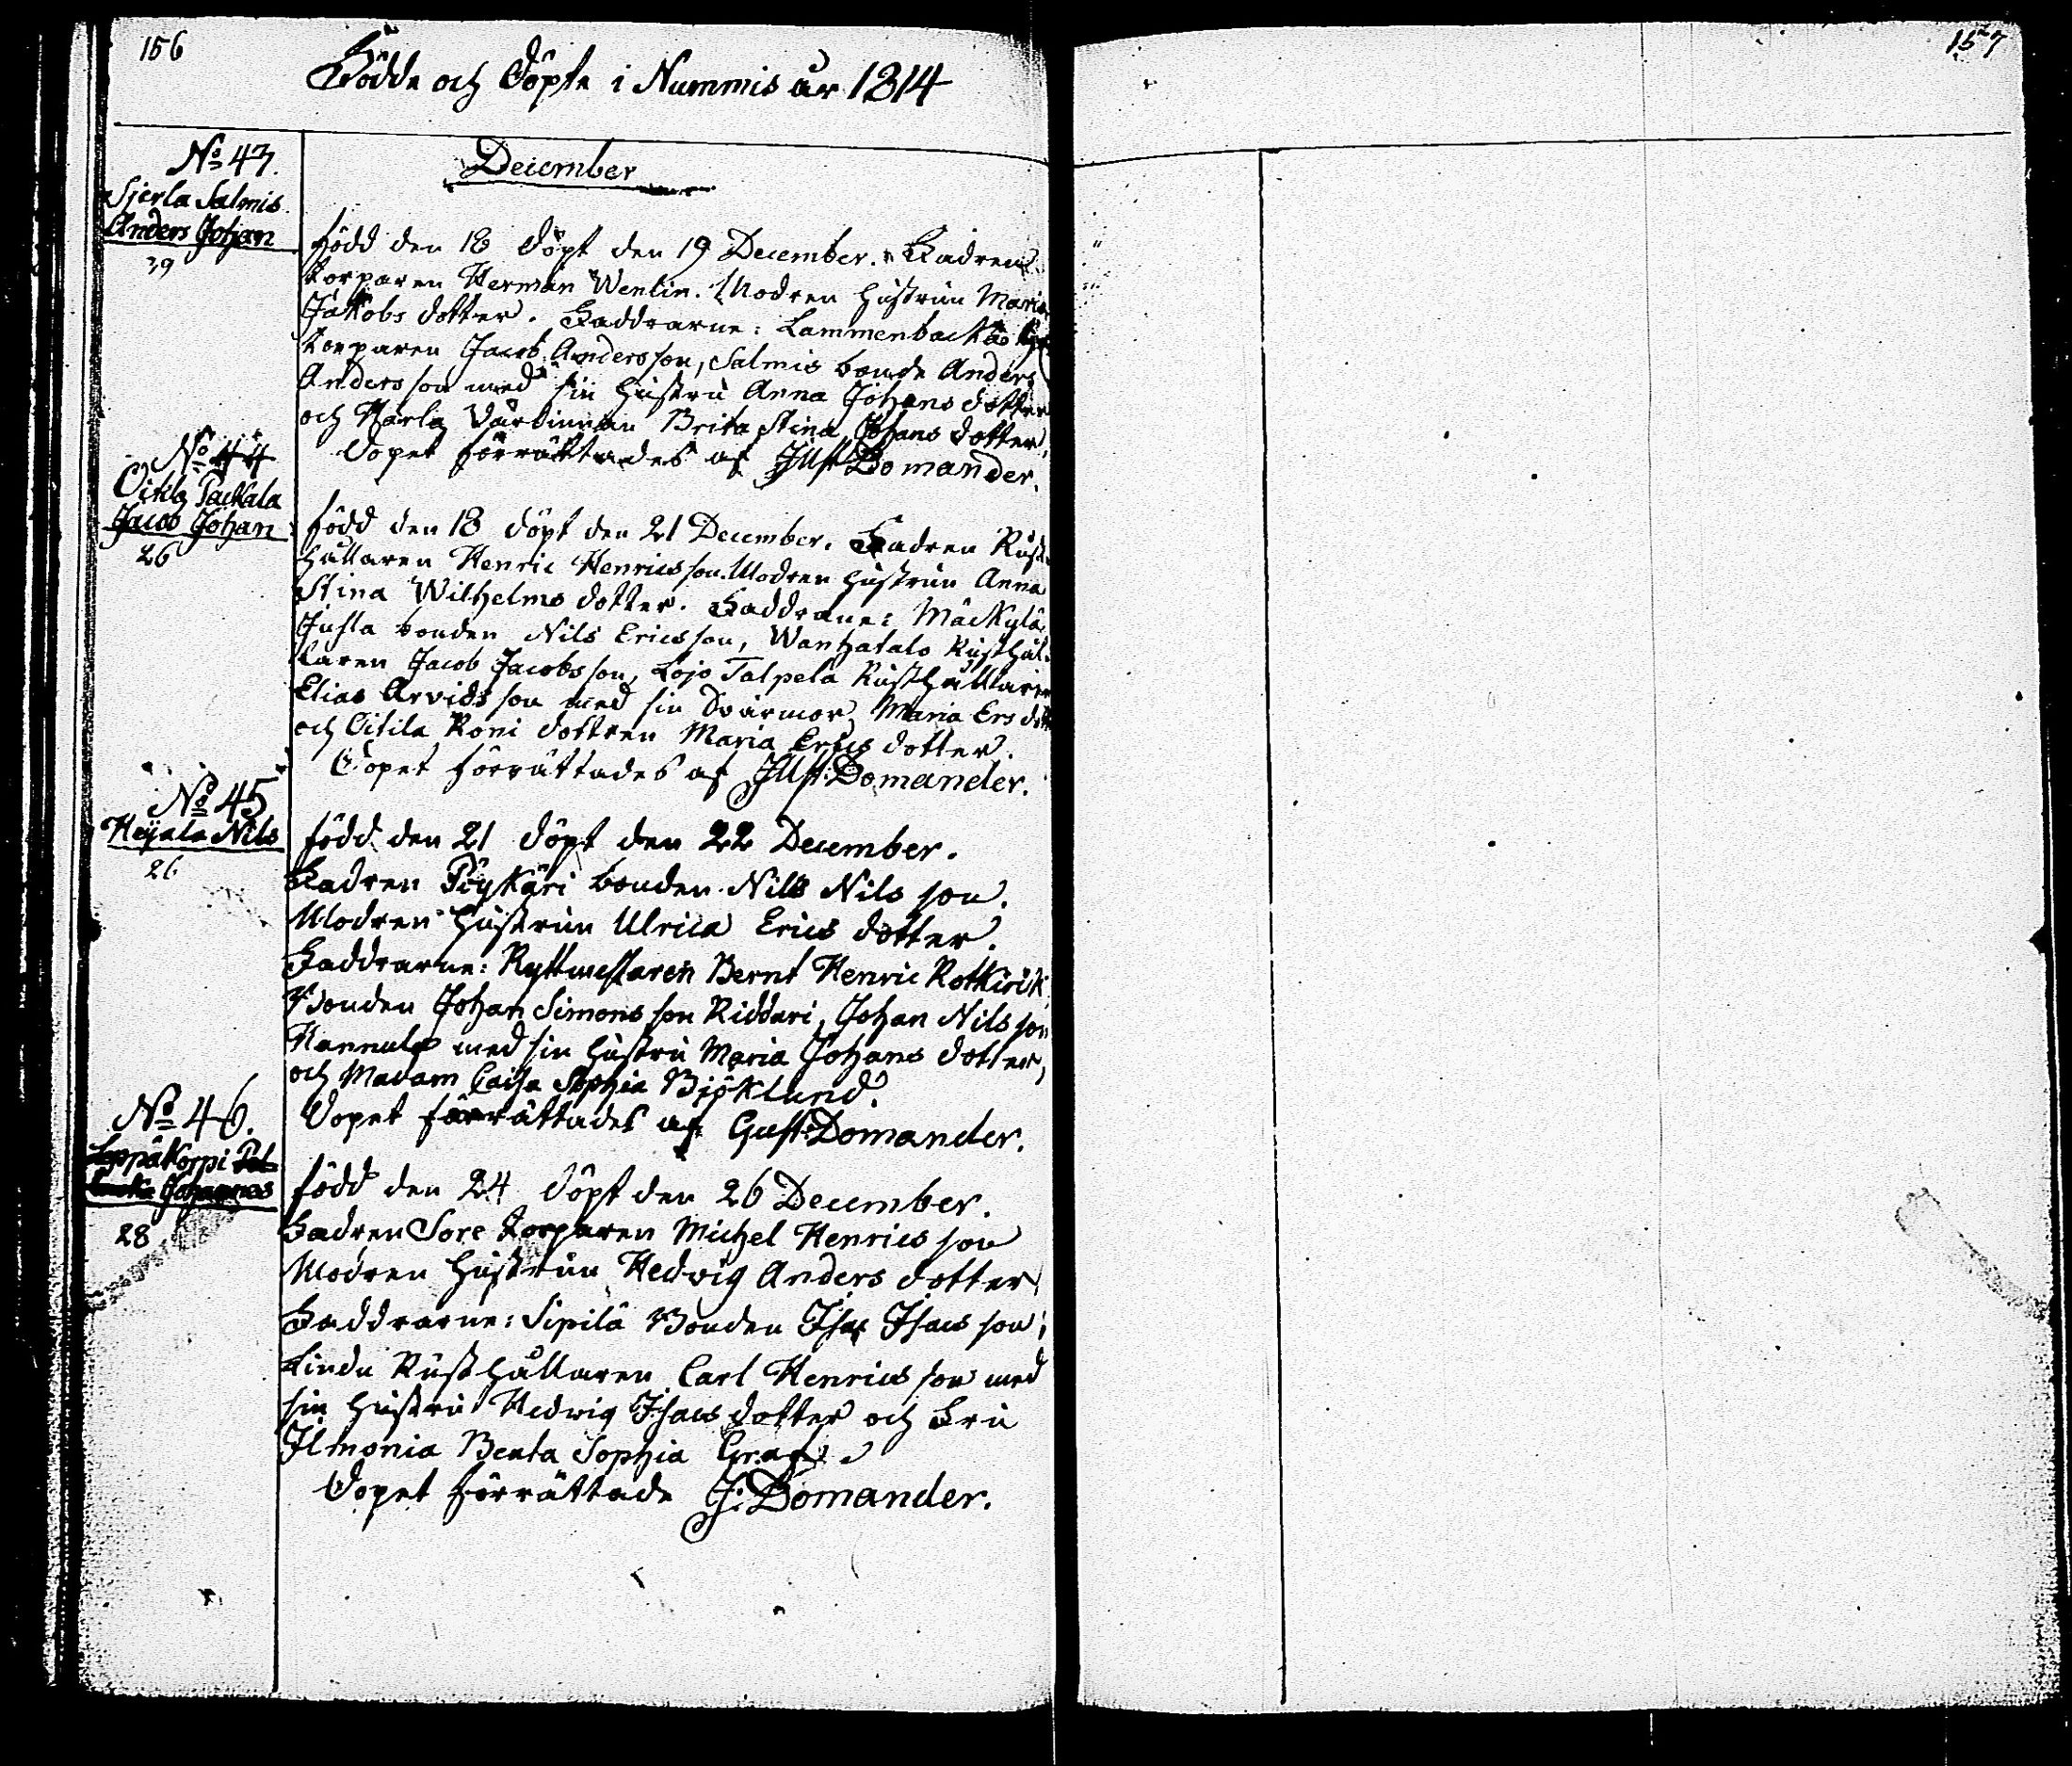 156
Födde och Döpte i Nummis år 1814
157
December
No 43.
Sjerla Salmis
Anders Johan
39
född den 18 döpt den 19 December. Fadren
torparen Herman Wenlin. Modren hustrun Maria
Jakobs dotter. Faddrarne: Lammenbacka
torparen Jacob Andersson, Salmis bonde Anders
Andersson med sin hustru Anna Johans dotter
och Härla Värdinnan Brita Stina Johans dotter.
Dopet förrättades af Just Domander.
No 44
Oitila Packala
Jacob Johan
26
född den 18 döpt den 21 December. Fadren Rust-
hållaren Henric Henricsson. Modren hustrun Anna
Stina Wilhelms dotter. Faddrane: Mäckylä
Jusla bonden Nils Ericsson, Wanhatalo Rusthål-
laren Jacob Jacobsson, Lojo Talpela Rusthållaren
Elias Arvidsson med sin Svärmor Maria Ers dott
och Oitila Roni dottren Maria Erics dotter.
Dopet förrättades af Just: Domander.
No 45
Heijala Nils
26
född den 21 döpt den 22 December.
Fadren Pöykäri bonden Nils Nils son.
Modren hustrun Ulrica Erics dotter.
Faddrarne: Ryttmestaren Bernt Henric Rotkirck
Bonden Johan Simonsson Riddari, Johan Nilsson
Hannula med sin hustru Maria Johans dotter,
och Madam Caisa Sophia Bjöklund.
Dopet förrättades af Gust: Domander.
No 46.
Leppäkorpi
Johannes
28
född den 24 döpt den 26 December.
Fadren Sore torparen Michel Henrics son
Modren hustrun Hedvig Anders dotter
Faddrarne: Sipilä Bonden Isac Isacs son,
Lindu Rusthållaren Carl Henrics son med
sin hustru Hedwig Isacs dotter och Fru
Ilmonia Beata Sophia Graf.
Dopet förrättade J: Domander.